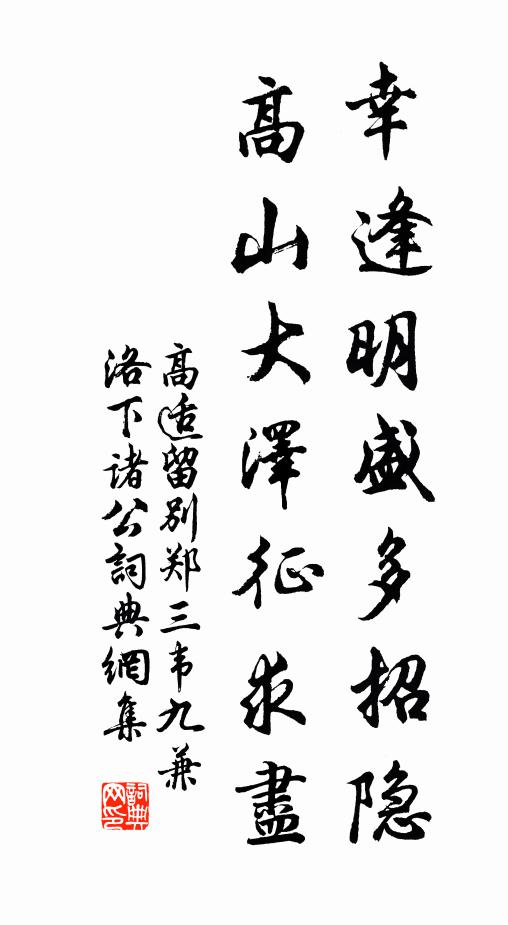 幸逢明盛多招隐
高山大澤征求盡
高适留别郑三韦九兼
洛下诸公詞典網集
詞典网印